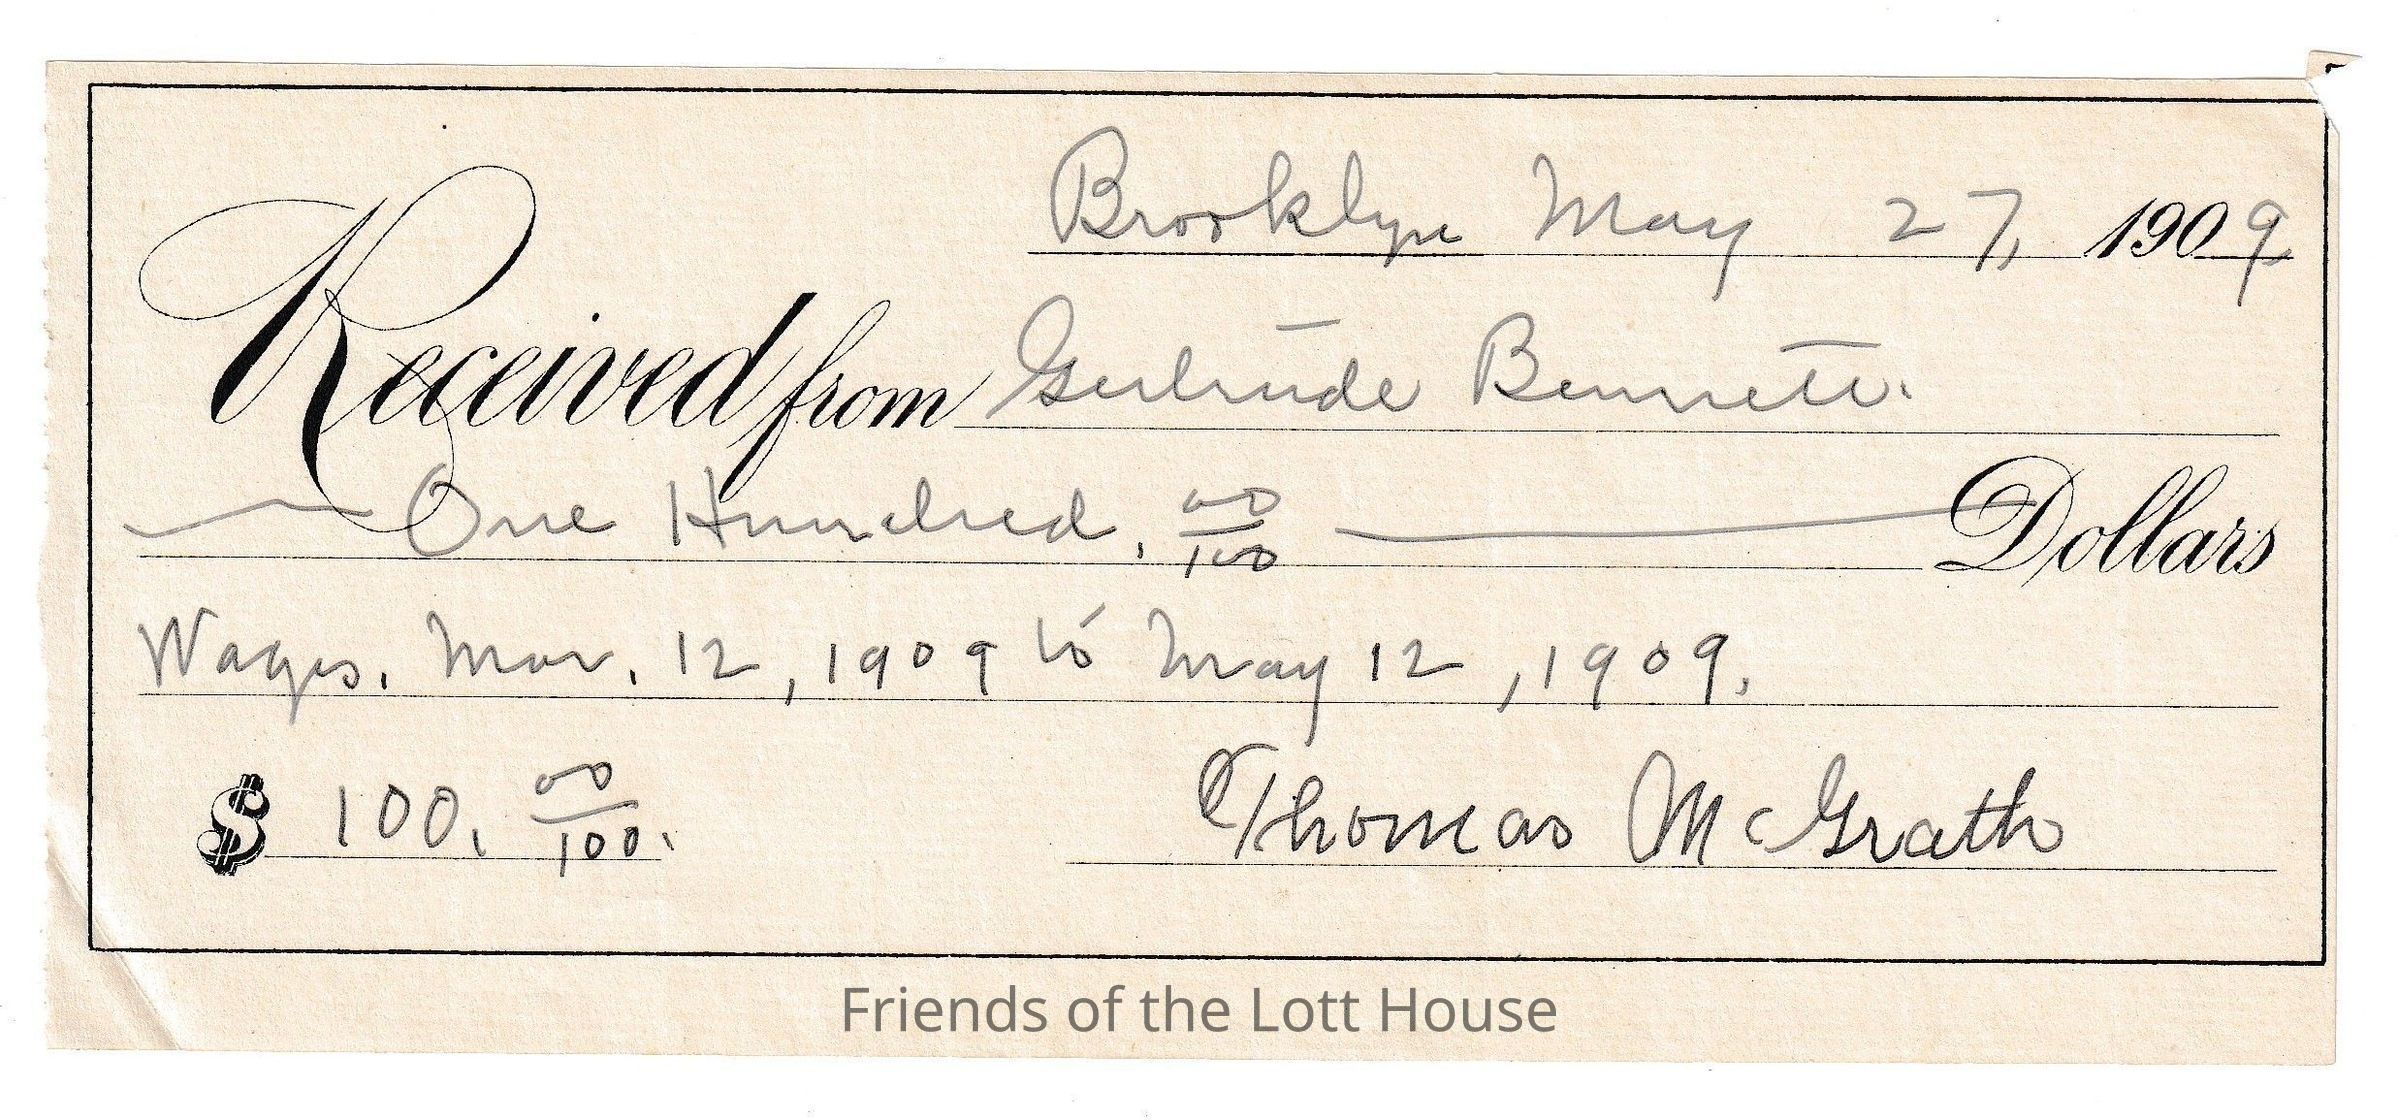 Brooklyn May 27, 1909
Received from Gertrude Bennett.
One Hundred, 00/100 Dollars
Wages. Mar. 12, 1909 to May 12, 1909.
$ 100. 00/100.
Thomas McGrath
Friends of the Lott House